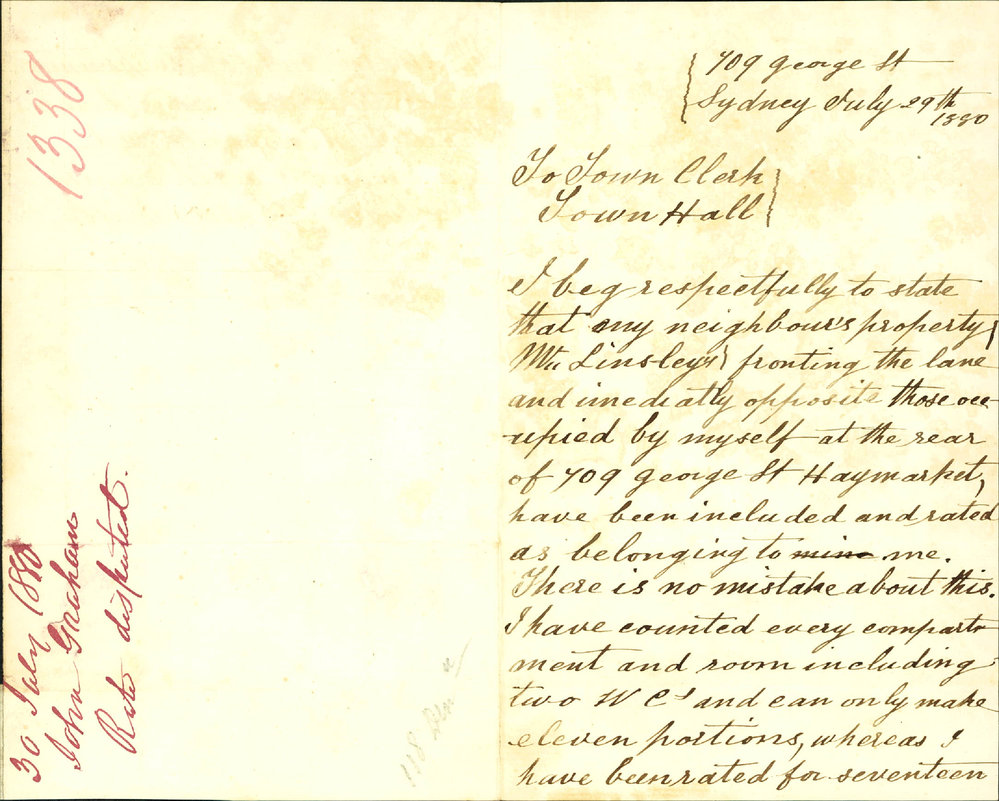 1338
30 July 1880
John Graham
Rate disputed.
118
709 george St
Sydney July 29th
1880
To Town Clerk
Town Hall
I beg respectfully to state
that my neighbour's property
(Mr Linsley's) fronting the lane
and imediatly opposite those occ-
-upied by myself at the rear
of 709 george St Haymarket,
have been included and rated
as belonging to mine me.
There is no mistake about this.
I have counted every compart-
ment and room including
two W Cs and can only make
eleven portions, whereas I
have been rated for seventeen